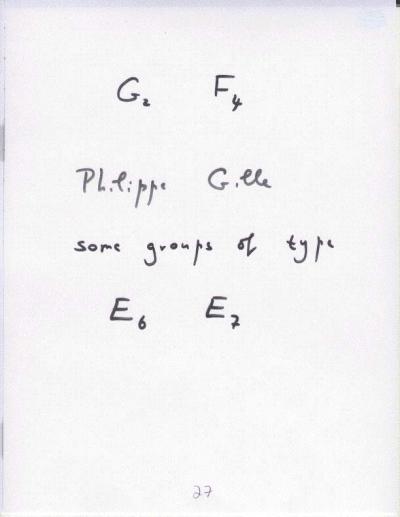 G₂ F₄
Philippe Gille
some groups of type
E₆ E₇
27